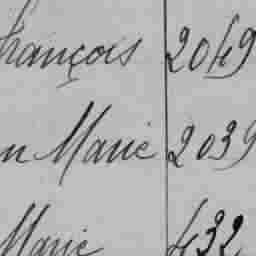 François 2049
n Marie 2039
Marie 432